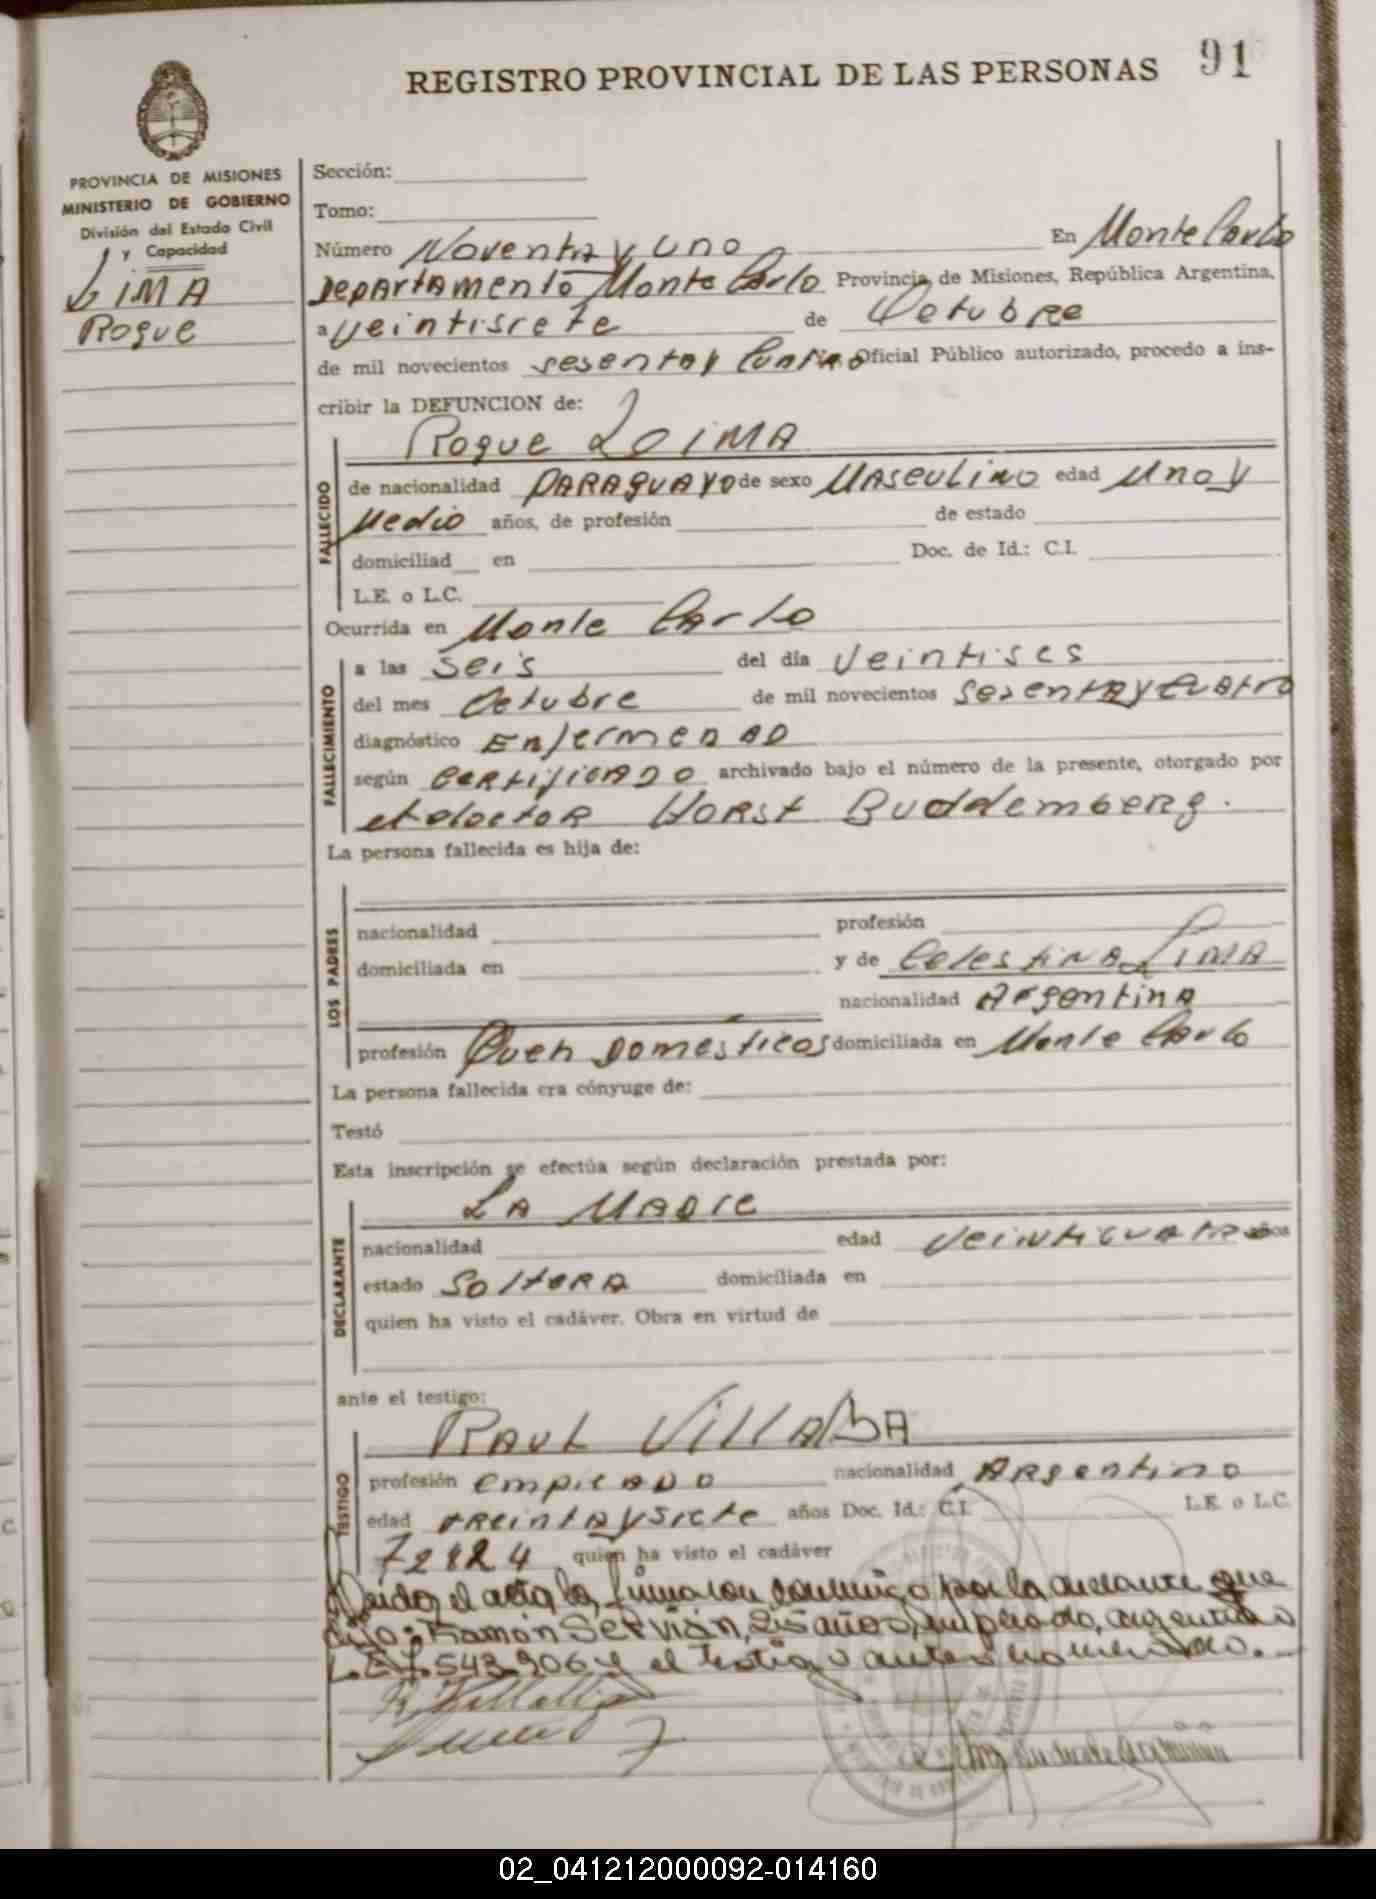 91
REGISTRO PROVINCIAL DE LAS PERSONAS
PROVINCIA DE MISIONES
MINISTERIO DE GOBIERNO
División del Estado Civil
y Capacidad
LIMA
Roque
Sección:
Tomo:
Número Noventa y uno En Monte Carlo
Departamento Monte Carlo Provincia de Misiones, República Argentina,
a veintisiete de Octubre
de mil novecientos sesenta y Cuatro Oficial Público autorizado, procedo a ins-
cribir la DEFUNCION de:
Roque LoiMA
FALLECIDO
de nacionalidad PARAGUAYO de sexo MAsculino edad uno y
Medio años, de profesión de estado
domiciliad en Doc. de Id.: C.I.
L.E. o L.C.
Ocurrida en Monte Carlo
FALLECIMIENTO
a las seis del día veintises
del mes Octubre de mil novecientos sesenta y cuatro
diagnóstico Enfermedad
según certificado archivado bajo el número de la presente, otorgado por
el doctor Horst Buddemberg.
La persona fallecida es hija de:
LOS PADRES
nacionalidad profesión
domiciliada en y de Celestina LiMA
nacionalidad Argentina
profesión Queh Domésticos domiciliada en Monte Carlo
La persona fallecida era cónyuge de:
Testó
Esta inscripción se efectúa según declaración prestada por:
LA MADre
DECLARANTE
nacionalidad edad veinticuatro años
estado Soltera domiciliada en
quien ha visto el cadáver. Obra en virtud de
ante el testigo:
RAUL VillaBA
TESTIGO
profesión empleado nacionalidad Argentino
edad treinta y siete años Doc. Id.: C.I. L.E. o L.C.
72824 quien ha visto el cadáver
Leída el acta la firmaron conmigo por la declarante que
dijo: Ramón Servián, 25 años, empleado, argentino
L.E. 7.543.906 y el testigo antes nomenado.
02_041212000092-014160